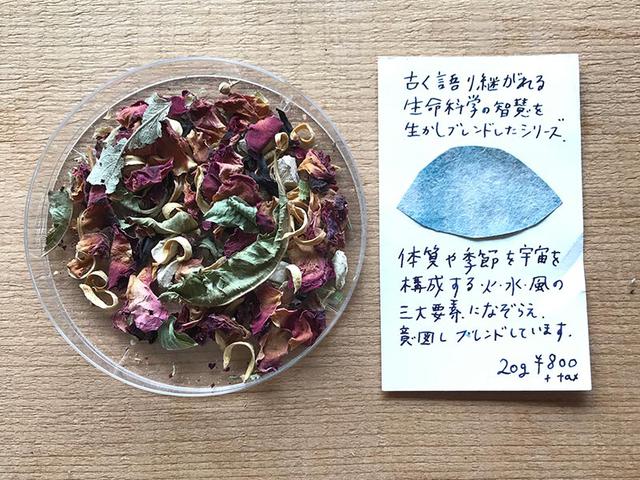 古く語り継がれる
生命科学の智慧を
生かしブレンドしたシリーズ.
体質や季節を宇宙を
構成する火・水・風の
三大要素になぞらえ.
意図しブレンドしています.
20g ¥800
+ tax